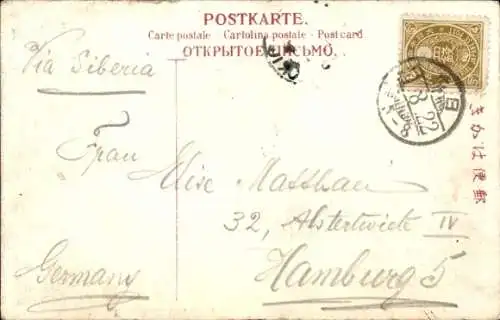 POSTKARTE.
Carte postale - Cartolina postale - Postcard
ОТКРЫТОЕ ПИСЬМО.
Via Siberia
8
22
きかは便郵
Frau
Matthaei
32, Alstertwiete IV
Hamburg 5
Germany